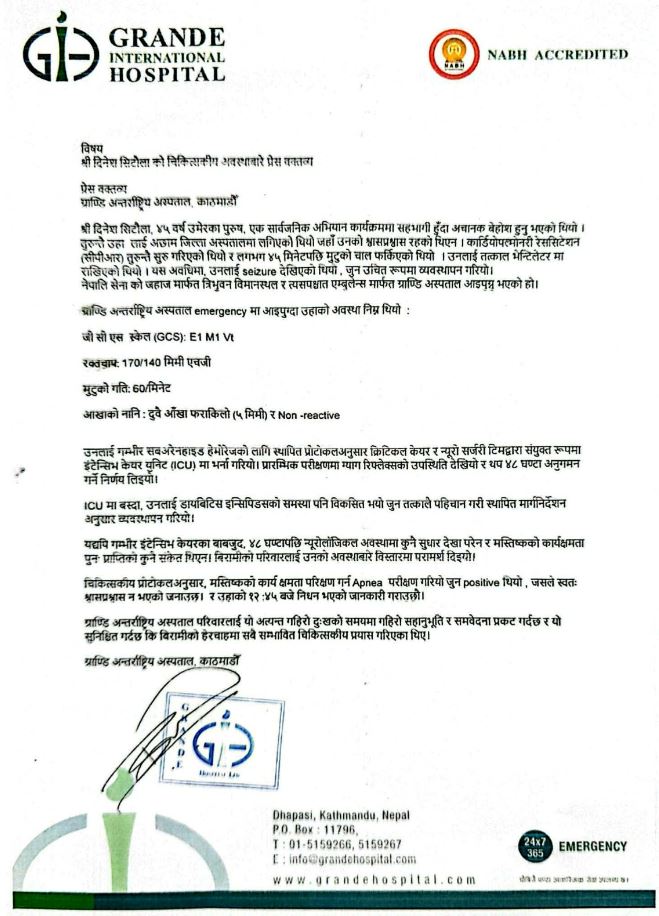 GRANDE
INTERNATIONAL
HOSPITAL
NABH
NABH ACCREDITED
विषय
श्री दिनेश सिटौला को चिकित्सकीय अवस्थाबारे प्रेस वक्तव्य
प्रेस वक्तव्य
ग्राण्डि अन्तर्राष्ट्रिय अस्पताल, काठमाडौँ
श्री दिनेश सिटौला, ४५ वर्ष उमेरका पुरुष, एक सार्वजनिक अभियान कार्यक्रममा सहभागी हुँदा अचानक बेहोश हुनु भएको थियो ।
तुरुन्तै उहा लाई अछाम जिल्ला अस्पतालमा लगिएको थियो जहाँ उनको श्वासप्रश्वास रहको थिएन । कार्डियोपल्मोनरी रेससिटेशन
(सीपीआर) तुरुन्तै सुरु गरिएको थियो र लगभग ४५ मिनेटपछि मुटुको चाल फर्किएको थियो । उनलाई तत्काल भेन्टिलेटर मा
राखिएको थियो । यस अवधिमा, उनलाई seizure देखिएको थियो , जुन उचित रूपमा व्यवस्थापन गरियो।
नेपालि सेना को जहाज मार्फत त्रिभुवन विमानस्थल र त्यसपश्चात एम्बुलेन्स मार्फत ग्राण्डि अस्पताल आइपुग्नु भएको हो।
ग्राण्डि अन्तर्राष्ट्रिय अस्पताल emergency मा आइपुग्दा उहाको अवस्था निम्न थियो :
जी सी एस स्केल (GCS): E1 M1 Vt
रक्तचाप: 170/140 मिमी एचजी
मुटुको गति: 60/मिनेट
आखाको नानि : दुवै आँखा फराकिलो (५ मिमी) र Non -reactive
उनलाई गम्भीर सबअरेनहाइड हेमोरेजको लागि स्थापित प्रोटोकलअनुसार क्रिटिकल केयर र न्यूरो सर्जरी टिमद्वारा संयुक्त रूपमा
इंटेन्सिभ केयर युनिट (ICU) मा भर्ना गरियो। प्रारम्भिक परीक्षणमा ग्याग रिफ्लेक्सको उपस्थिति देखियो र थप ४८ घण्टा अनुगमन
गर्ने निर्णय लिइयो।
ICU मा बस्दा, उनलाई डायबिटिस इन्सिपिडसको समस्या पनि विकसित भयो जुन तत्कालै पहिचान गरी स्थापित मार्गनिर्देशन
अनुसार व्यवस्थापन गरियो।
यद्यपि गम्भीर इंटेन्सिभ केयरका बाबजुद, ४८ घण्टापछि न्यूरोलॉजिकल अवस्थामा कुनै सुधार देखा परेन र मस्तिष्कको कार्यक्षमता
पुनः प्राप्तिको कुनै संकेत थिएन। बिरामीको परिवारलाई उनको अवस्थाबारे विस्तारमा परामर्श दिइयो।
चिकित्सकीय प्रोटोकलअनुसार, मस्तिष्कको कार्य क्षमता परिक्षण गर्न Apnea परीक्षण गरियो जुन positive थियो , जसले स्वतः
श्वासप्रश्वास न भएको जनाउछ। र उहाको १२ :४५ बजे निधन भएको जानकारी गराउछौ।
ग्राण्डि अन्तर्राष्ट्रिय अस्पताल परिवारलाई यो अत्यन्त गहिरो दुःखको समयमा गहिरो सहानुभूति र समवेदना प्रकट गर्दछ र यो
सुनिश्चित गर्दछ कि बिरामीको हेरचाहमा सबै सम्भावित चिकित्सकीय प्रयास गरिएका थिए।
ग्राण्डि अन्तर्राष्ट्रिय अस्पताल, काठमाडौँ
GRANDE
Dhapasi, Kathmandu, Nepal
P.O. Box : 11796,
T : 01-5159266, 5159267
E : info@grandehospital.com
www.grandehospital.com
24x7
365
EMERGENCY